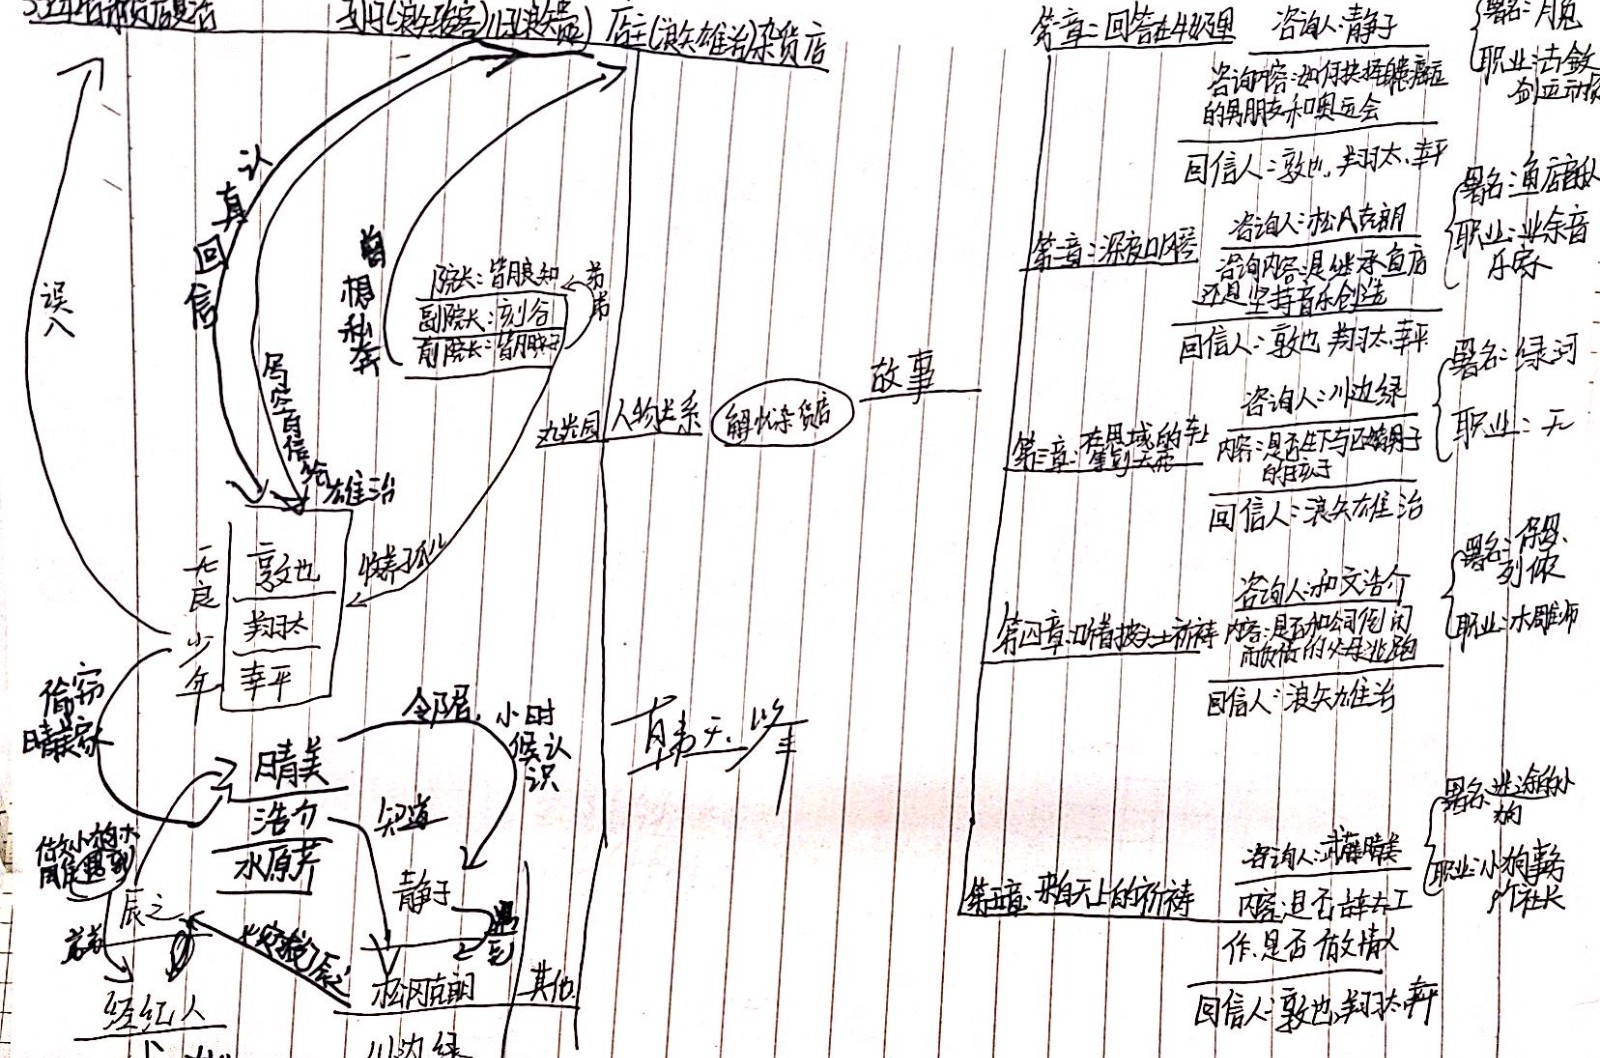 店主(浪矢雄治)杂货店
误入
认真回信
曾想私奔
写空白信给雄治
院长:皆月良知
副院长:刘谷
前院长:皆月映子
弟弟
丸光园
人物关系
解忧杂货店
故事
收养孤儿
无良少年
敦也
翔太
幸平
偷窃晴美家
晴美
浩介
水原芹
邻居,小时候认识
知道
静子
遇到
辰之
火灾救了辰之
松冈克朗
其他
经纪人
川边绿
有志天少年
第一章:回答在牛奶箱里
咨询人:静子
咨询内容:如何抉择身患癌症
的男朋友和奥运会
回信人:敦也,翔太,幸平
署名:月兔
职业:击剑运动
第二章:深夜口琴
咨询人:松冈克朗
咨询内容:是继承鱼店
还是坚持音乐创造
回信人:敦也 翔太,幸平
职业:业余音
乐家
第三章:在思域的车上
等到天亮
咨询人:川边绿
内容:是否生下与已婚男子
的孩子
回信人:浪矢雄治
署名:绿河
职业:无
第四章:听着披头士祈祷
咨询人:和文浩介
内容:是否和公司倒闭
而负债的父母逃跑
回信人:浪矢雄治
署名:保罗·
列侬
职业:木雕师
第五章:来自天上的祈祷
咨询人:武藤晴美
内容:是否辞去工
作,是否有文情人
回信人:敦也,翔太,幸平
署名:迷途的小
狗
职业:小狗事务
所社长